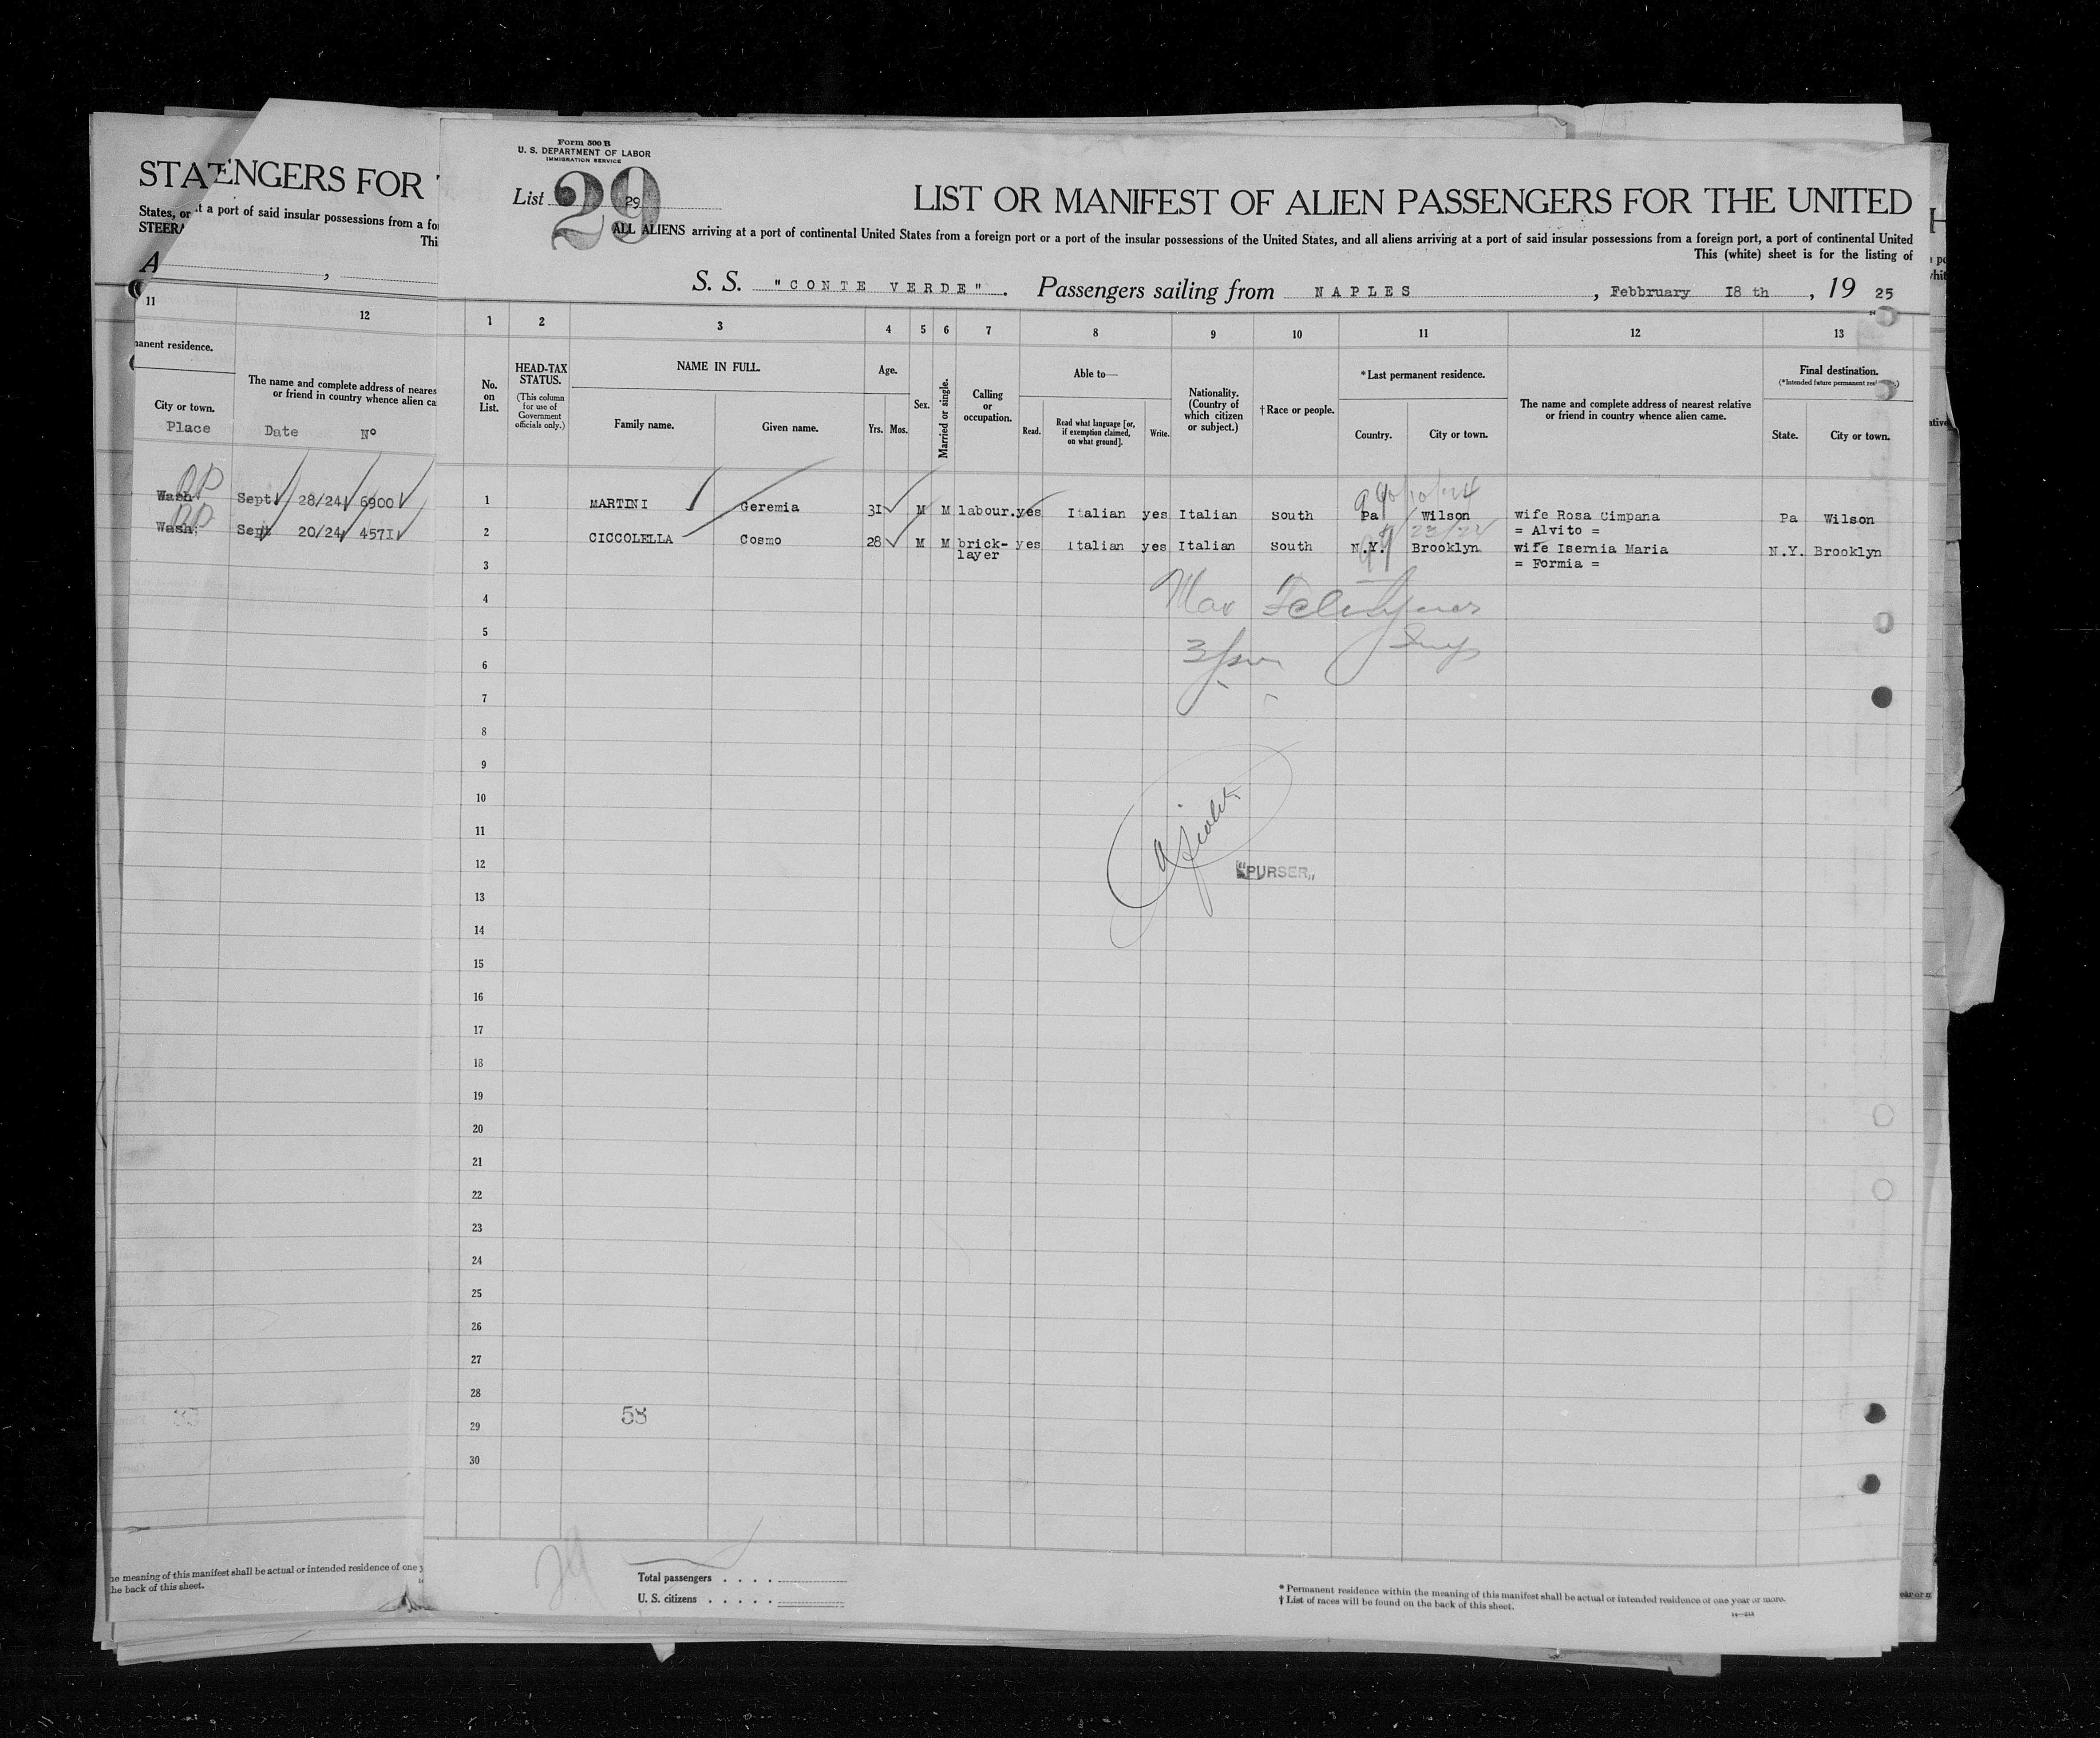 STATENGERS FOR
States, or
.t a port of said insular possessions from a for
STEERA
Thi
A
11
12
nanent residence.
The name and complete address of neares
or friend in country whence alien ca
City or town.
Place Date Nº
RP
Wash. Sept 28/24 6900
RP
Wash; Sept 20/24 457I
ne meaning of this manifest shall be actual or intended residence of one y
he back of this sheet.
Form 500 B
U. S. DEPARTMENT OF LABOR
IMMIGRATION SERVICE
List 29
29
LIST OR MANIFEST OF ALIEN PASSENGERS FOR THE UNITED
ALL ALIENS arriving at a port of continental United States from a foreign port or a port of the insular possessions of the United States, and all aliens arriving at a port of said insular possessions from a foreign port, a port of continental United
This (white) sheet is for the listing of
S. S. "CONTE VERDE". Passengers sailing from NAPLES, Febbruary I8 th, 19 25
1 2 3 4 5 6 7 8 9 10 11 12 13
No. on List.
HEAD-TAX STATUS.
(This column for use of Government officials only.)
NAME IN FULL.
Family name. Given name.
Age.
Yrs. Mos.
Sex.
Married or single.
Calling or occupation.
Able to—
Read. Read what language [or, if exemption claimed, on what ground]. Write.
Nationality. (Country of which citizen or subject.)
†Race or people.
*Last permanent residence.
Country. City or town.
The name and complete address of nearest relative
or friend in country whence alien came.
Final destination.
(*Intended future permanent res
State. City or town.
10/10/24
1 MARTINI Geremia 3I M M labour. yes Italian yes Italian South Pa Wilson wife Rosa Cimpana Pa Wilson
= Alvito =
23/24
2 CICCOLELLA Cosmo 28 M M brick- yes Italian yes Italian South N.Y. Brooklyn wife Isernia Maria N.Y. Brooklyn
layer = Formia =
3
4
5
6
7
8
9
10
11
12
"PURSER"
13
14
15
16
17
18
19
20
21
22
23
24
25
26
27
28
58
29
30
29
Total passengers . . . .
U. S. citizens . . . . .
* Permanent residence within the meaning of this manifest shall be actual or intended residence of one year or more.
† List of races will be found on the back of this sheet.